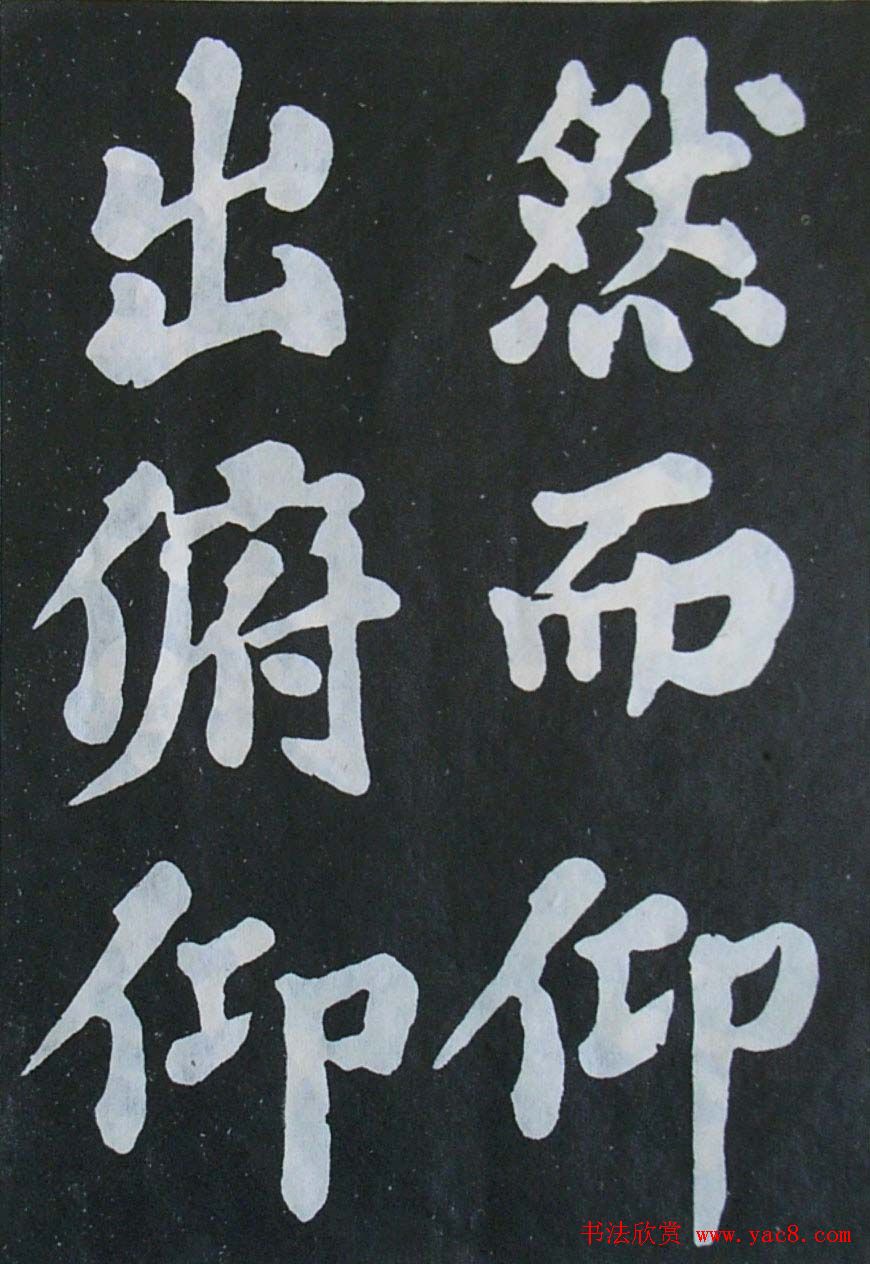 然而仰
出俯仰
书法欣赏 www.yac8.com